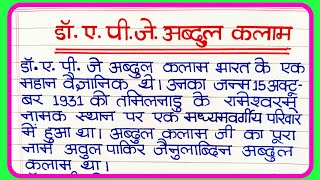 डॉ. ए. पी.जे. अब्दुल कलाम
डॉ. ए. पी. जे अब्दुल कलाम भारत के एक
महान वैज्ञानिक थे। उनका जन्म 15 अक्टू-
बर 1931 को तमिलनाडु के रामेश्वरम
नामक स्थान पर एक मध्यमवर्गीय परिवार
में हुआ था। अब्दुल कलाम जी का पूरा
नाम अवुल पाकिर जैनुलाब्दिन अब्दुल
कलाम था।